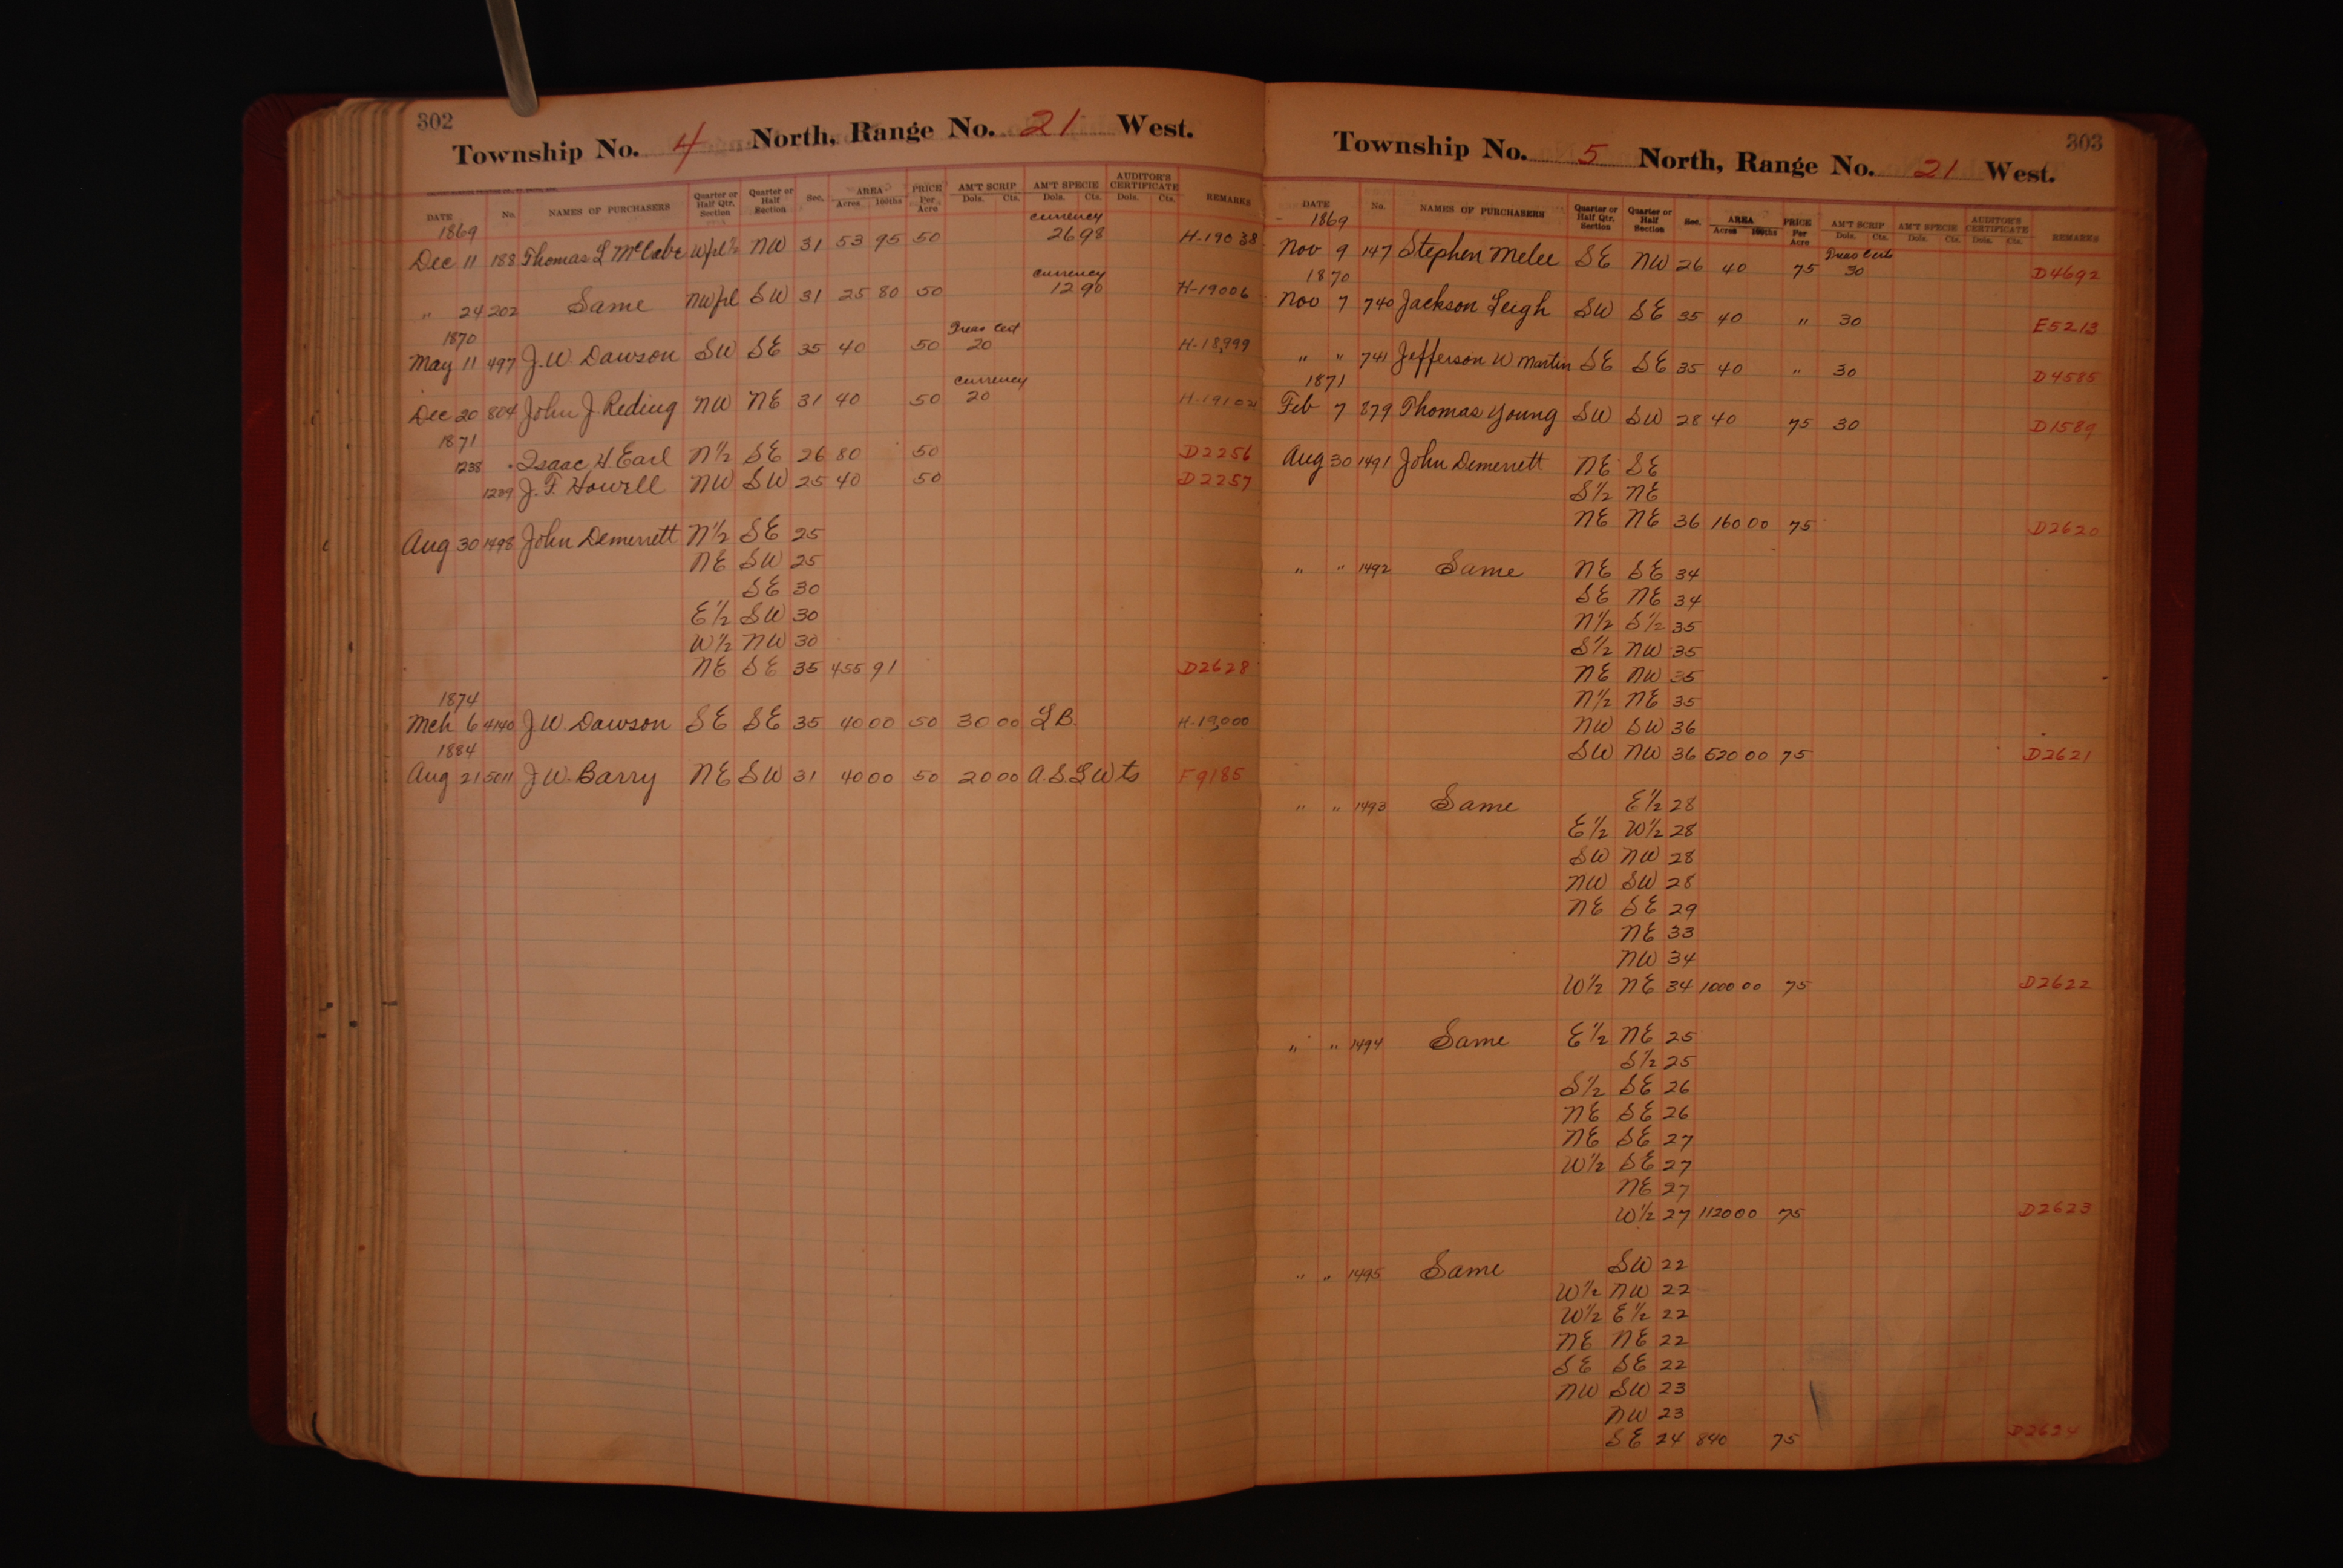 302
Township No. 4 North, Range No. 21 West.
DATE No. NAMES OF PURCHASERS Quarter or Half Qtr. Section Quarter or Half Section Sec. AREA Acres 100ths PRICE Per Acre AM'T SCRIP Dols. Cts. AM'T SPECIE Dols. Cts. AUDITOR'S CERTIFICATE Dols. Cts. REMARKS
1869 currency
Dec 11 188 Thomas L McCabe W frl ½ NW 31 53 95 50 26 98 H-19038
currency
" 24 202 Same NW frl SW 31 25 80 50 12 90 H-19006
1870 Treas Cert
May 11 497 J. W. Dawson SW SE 35 40 50 20 H-18,999
currency
Dec 20 804 John J. Reding NW NE 31 40 50 20
1871
1238 Isaac H. Earl N½ SE 26 80 50 D2256
1239 J. F. Howell NW SW 25 40 50 D2257
Aug 30 1498 John Demerrett N½ SE 25
NE SW 25
SE 30
E½ SW 30
W½ NW 30
NE SE 35 455 91 D2628
1874
Mch 6 4140 J. W. Dawson SE SE 35 40 00 50 30 00 L B. H-19,000
1884
Aug 21 5011 J. W. Barry NE SW 31 40 00 50 20 00 A. S. L W ts F9185
303
Township No. 5 North, Range No. 21 West.
DATE No. NAMES OF PURCHASERS Quarter or Half Qtr. Section Quarter or Half Section Sec. AREA Acres 100ths PRICE Per Acre AM'T SCRIP Dols. Cts. AM'T SPECIE Dols. Cts. AUDITOR'S CERTIFICATE Dols. Cts. REMARKS
1869 Treas Certs
Nov 9 147 Stephen Melee SE NW 26 40 75 30 D4692
1870
Nov 7 740 Jackson Leigh SW SE 35 40 " 30 E5213
" " 741 Jefferson W Martin SE SE 35 40 " 30 D4585
1871
Feb 7 879 Thomas Young SW SW 28 40 75 30 D1589
Aug 30 1491 John Demerrett NE SE
S½ NE
NE NE 36 160 00 75 D2620
" " 1492 Same NE SE 34
SE NE 34
N½ S½ 35
S½ NW 35
NE NW 35
N½ NE 35
NW SW 36
SW NW 36 520 00 75 D2621
" " 1493 Same E½ 28
E½ W½ 28
SW NW 28
NW SW 28
NE SE 29
NE 33
NW 34
W½ NE 34 1000 00 75 D2622
" " 1494 Same E½ NE 25
S½ 25
S½ SE 26
NE SE 26
NE SE 27
W½ SE 27
NE 27
W½ 27 1120 00 75 D2623
" " 1495 Same SW 22
W½ NW 22
W½ E½ 22
NE NE 22
SE SE 22
NW SW 23
NW 23
SE 24 840 75 D2624